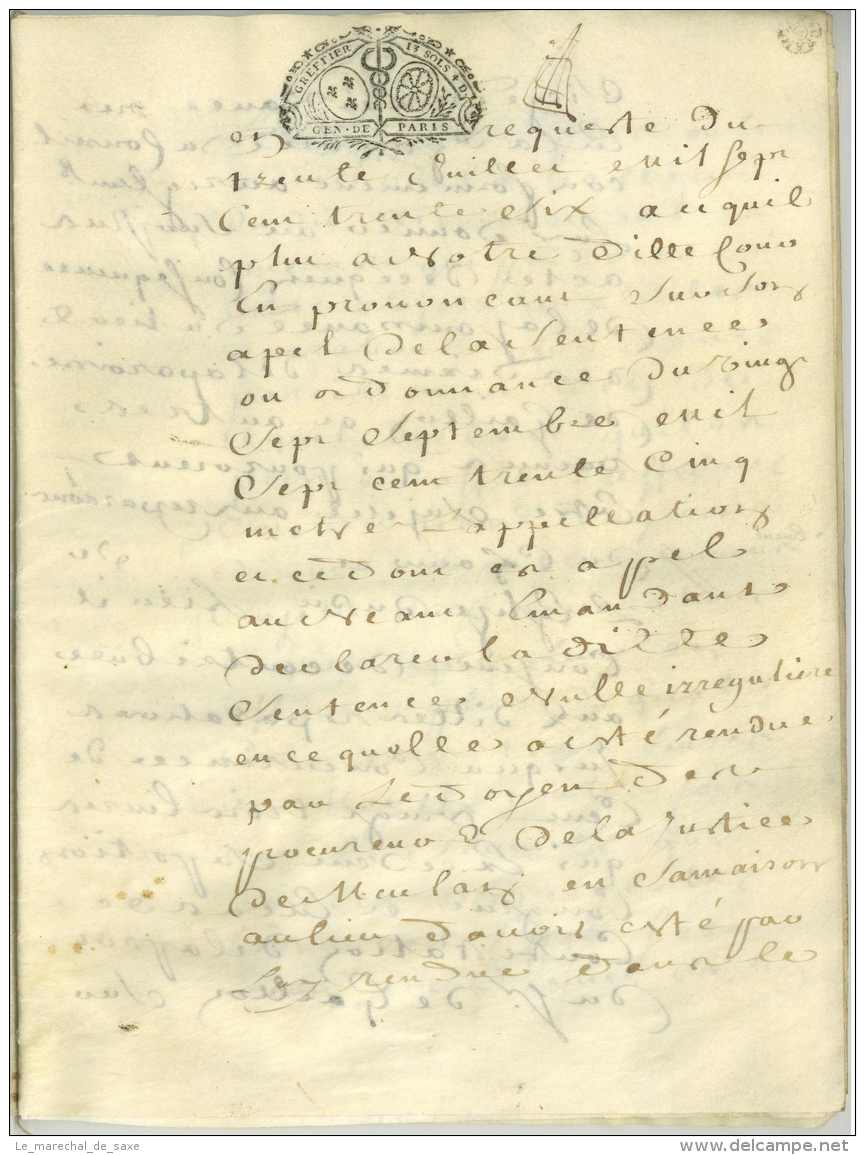 GREFFIER 13 SOLS 4 D.
GEN. DE PARIS
et requeste du
trente Juillet Mil sept
Cent trente Six a ce quil
plut a Notre ditte Cour
En prononcant Sur Son
apel de la Sentence
ou ordonnance du vingt
Sept Septembre Mil
Sept cent trente Cinq
mettre appellation
et ce dont est appel
au Neant Emandant
declarer la ditte
Sentence Nulle irreguliere
en ce quelle a esté rendue
par Le doyen des
procureurs de la Justice
de Meulan en Sa maison
au lieu davoir esté par
Luy rendue dans le
Le_marechal_de_saxe
www.delcampe.net